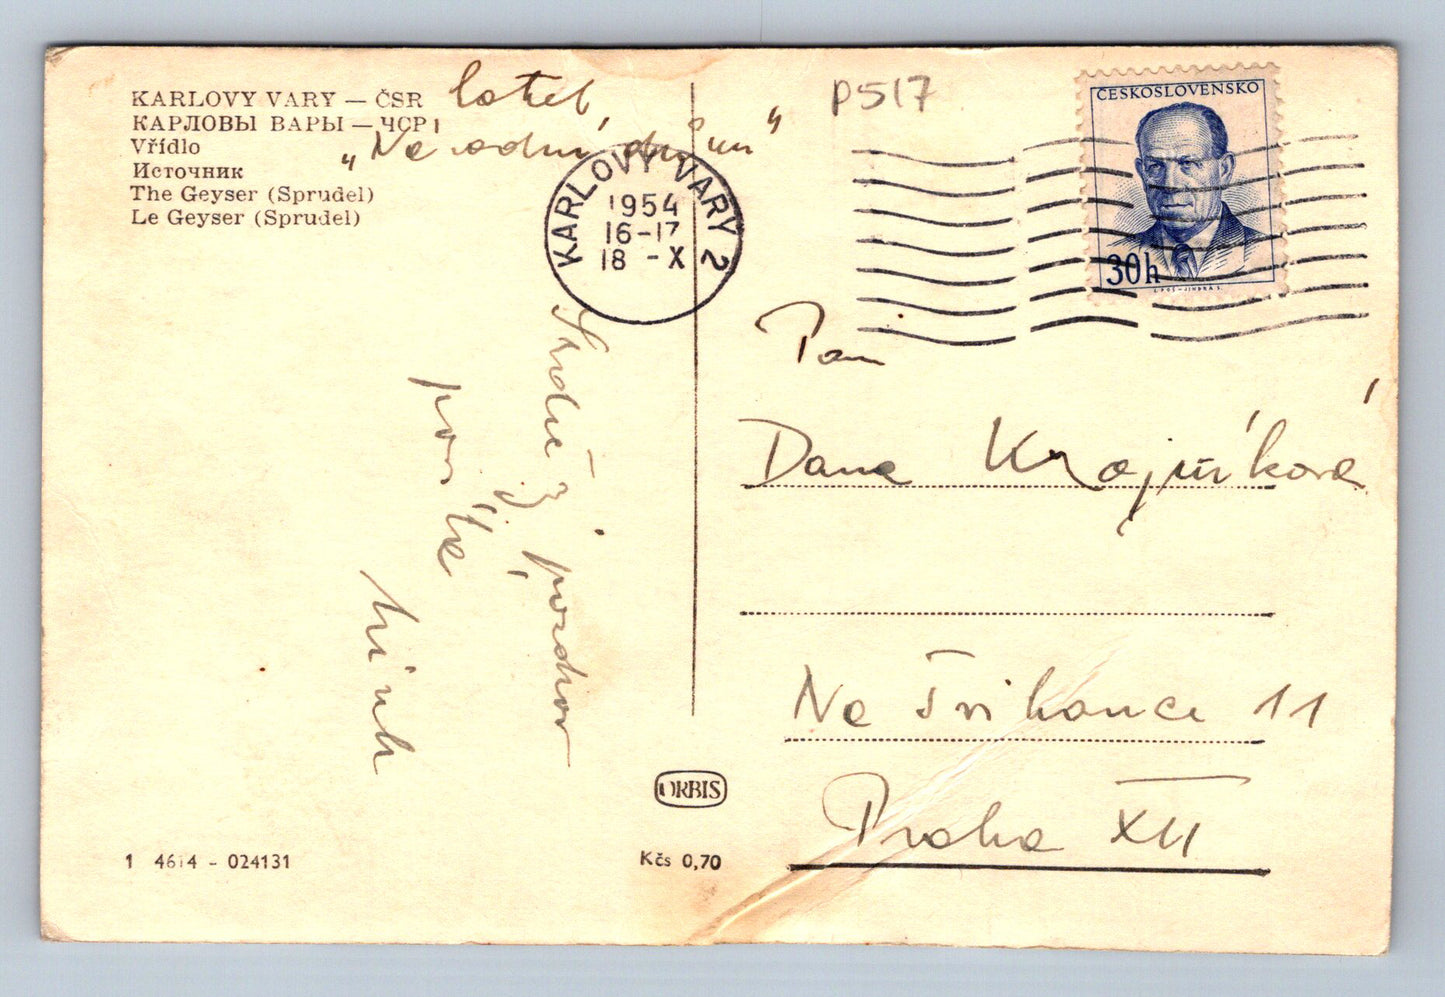 KARLOVY VARY — ČSR
КАРЛОВЫ ВАРЫ — ЧСР
Vřídlo
Источник
The Geyser (Sprudel)
Le Geyser (Sprudel)
hotel
"Národní dům"
P517
ČESKOSLOVENSKO
30h
KARLOVY VARY 2
1954
16-17
18 -X
Srdečný pozdrav
posílá
Paní
Dana Krajníková
Na Švihance 11
Praha XII
ORBIS
1 4614 - 024131
Kčs 0,70